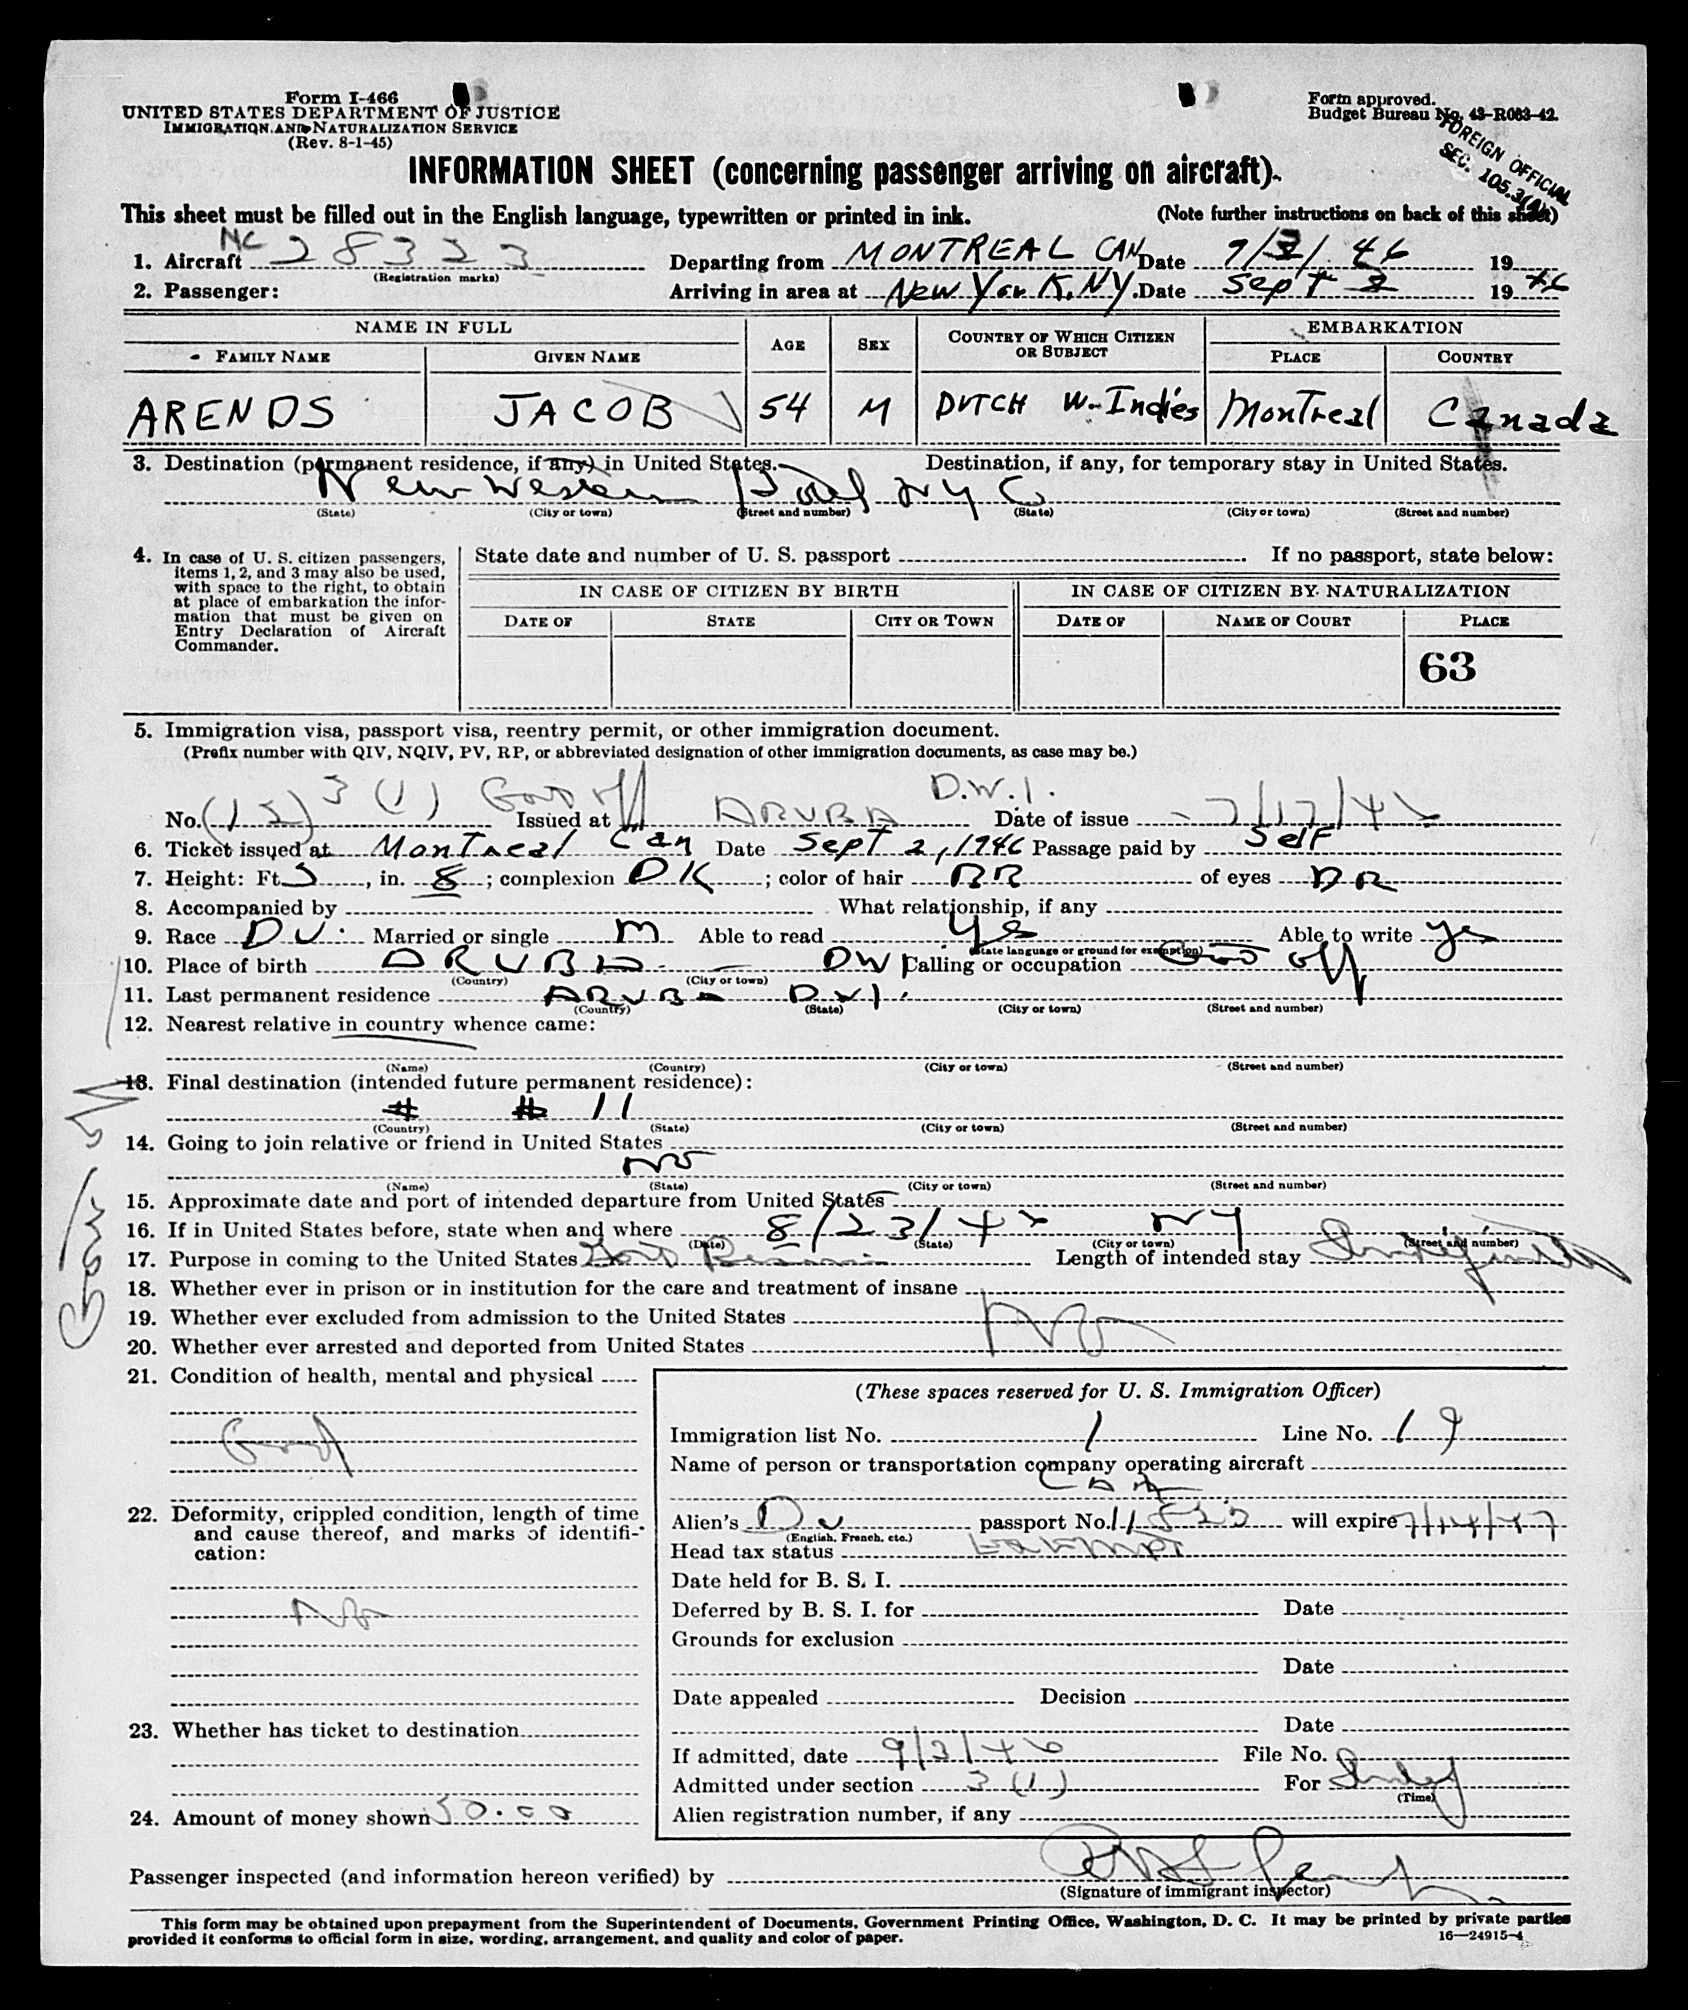 Form I-466
UNITED STATES DEPARTMENT OF JUSTICE
IMMIGRATION AND NATURALIZATION SERVICE
(Rev. 8-1-45)
Form approved.
Budget Bureau No. 43-R083-42.
FOREIGN OFFICIAL
SEC. 105.3(
INFORMATION SHEET (concerning passenger arriving on aircraft)
This sheet must be filled out in the English language, typewritten or printed in ink.
(Note further instructions on back of this sheet)
1. Aircraft NC 28323 Departing from MONTREAL CAN Date 9/ / 46 19
(Registration marks)
2. Passenger: Arriving in area at New York, NY. Date Sept 1946
NAME IN FULL AGE SEX COUNTRY OF WHICH CITIZEN OR SUBJECT EMBARKATION
FAMILY NAME GIVEN NAME PLACE COUNTRY
ARENDS JACOB 54 M DUTCH W-Indies Montreal Canada
3. Destination (permanent residence, if any) in United States. Destination, if any, for temporary stay in United States.
New Weston Hotel NYC
(State) (City or town) (Street and number) (State) (City or town) (Street and number)
4. In case of U. S. citizen passengers, items 1, 2, and 3 may also be used, with space to the right, to obtain at place of embarkation the information that must be given on Entry Declaration of Aircraft Commander.
State date and number of U. S. passport If no passport, state below:
IN CASE OF CITIZEN BY BIRTH IN CASE OF CITIZEN BY NATURALIZATION
DATE OF STATE CITY OR TOWN DATE OF NAME OF COURT PLACE
63
5. Immigration visa, passport visa, reentry permit, or other immigration document.
(Prefix number with QIV, NQIV, PV, RP, or abbreviated designation of other immigration documents, as case may be.)
D.W.I.
No. 3 (1) Issued at ARUBA Date of issue 7/17/4
6. Ticket issued at Montreal Can Date Sept 2, 1946 Passage paid by Self
7. Height: Ft. 5, in. 8; complexion DK; color of hair BR of eyes BR
8. Accompanied by What relationship, if any
9. Race DU. Married or single M Able to read Yes Able to write Yes
(State language or ground for exemption)
10. Place of birth ARUBA DWI Calling or occupation Off
(Country) (City or town)
11. Last permanent residence ARUBA DWI.
(Country) (State) (City or town) (Street and number)
12. Nearest relative in country whence came:
(Name) (Country) (City or town) (Street and number)
13. Final destination (intended future permanent residence):
# 11
(Country) (State) (City or town) (Street and number)
14. Going to join relative or friend in United States
No
(Name) (State) (City or town) (Street and number)
15. Approximate date and port of intended departure from United States
16. If in United States before, state when and where 8/23/4 NY
(Date) (State) (City or town) (Street and number)
17. Purpose in coming to the United States Length of intended stay
18. Whether ever in prison or in institution for the care and treatment of insane
19. Whether ever excluded from admission to the United States No
20. Whether ever arrested and deported from United States
21. Condition of health, mental and physical
Good
22. Deformity, crippled condition, length of time and cause thereof, and marks of identification:
No
23. Whether has ticket to destination
24. Amount of money shown 50.00
(These spaces reserved for U. S. Immigration Officer)
Immigration list No. 1 Line No. 19
Name of person or transportation company operating aircraft
Alien's Du passport No. will expire 7/14/47
(English, French, etc.)
Head tax status Exempt
Date held for B. S. I.
Deferred by B. S. I. for Date
Grounds for exclusion
Date
Date appealed Decision
Date
If admitted, date 9/3/46 File No.
Admitted under section 3 (1) For Indef
(Time)
Alien registration number, if any
Passenger inspected (and information hereon verified) by
(Signature of immigrant inspector)
This form may be obtained upon prepayment from the Superintendent of Documents, Government Printing Office, Washington, D. C. It may be printed by private parties
provided it conforms to official form in size, wording, arrangement, and quality and color of paper.
16—24915-4